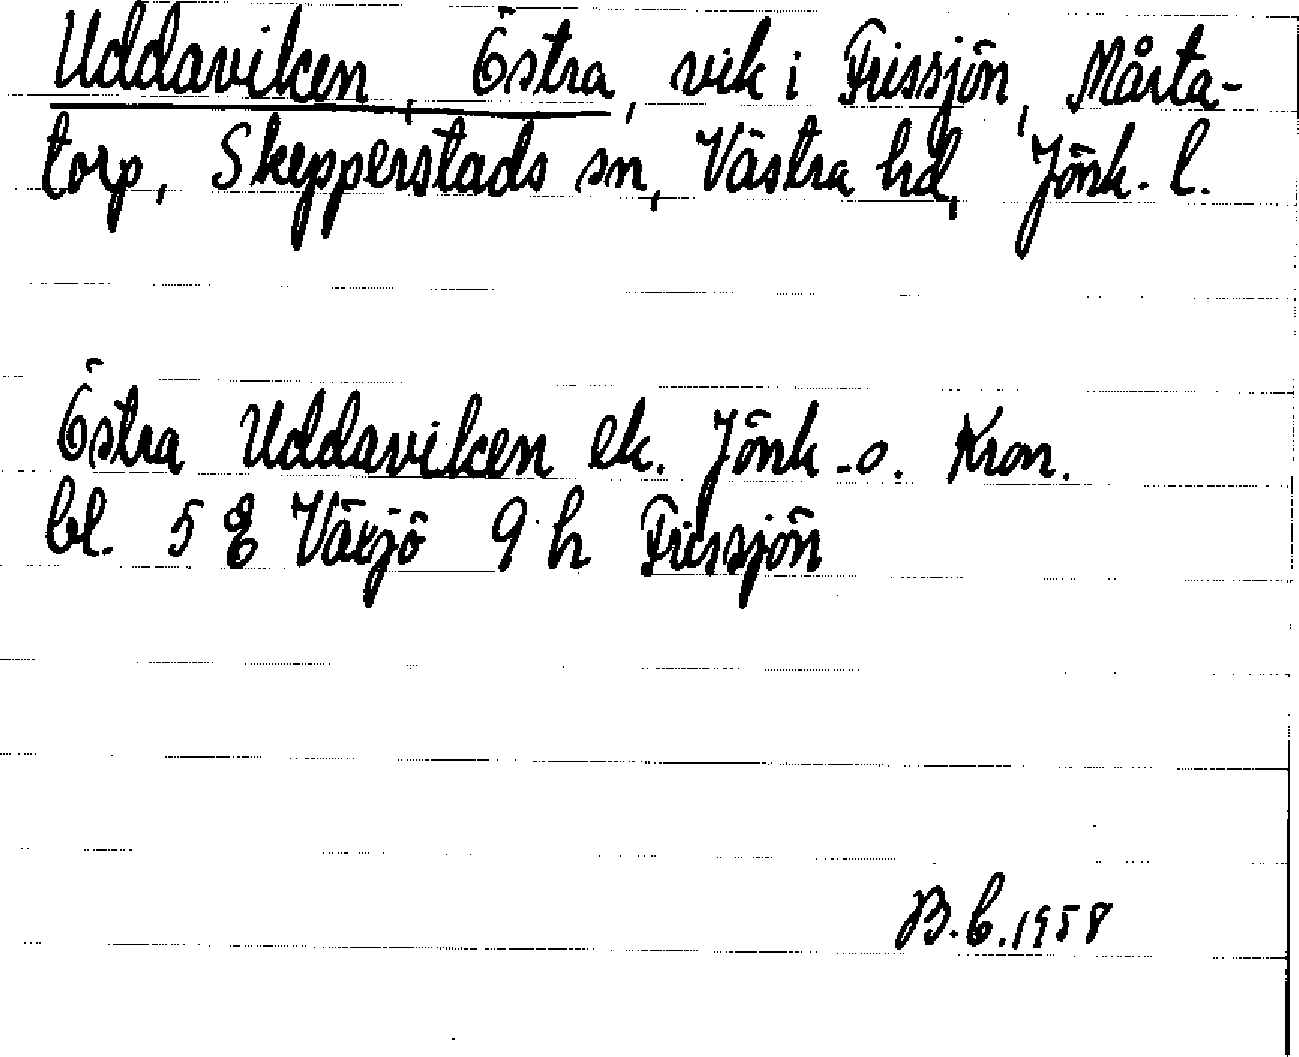 Uddaviken, Östra, vik i Frissjön, Mårta-
torp, Skepperstads sn, Västra hd, Jönk. l.
Östra Uddaviken ek. Jönk. o. Kron.
bl. 5 E Växjö 9 h Frissjön
B.E. 1958